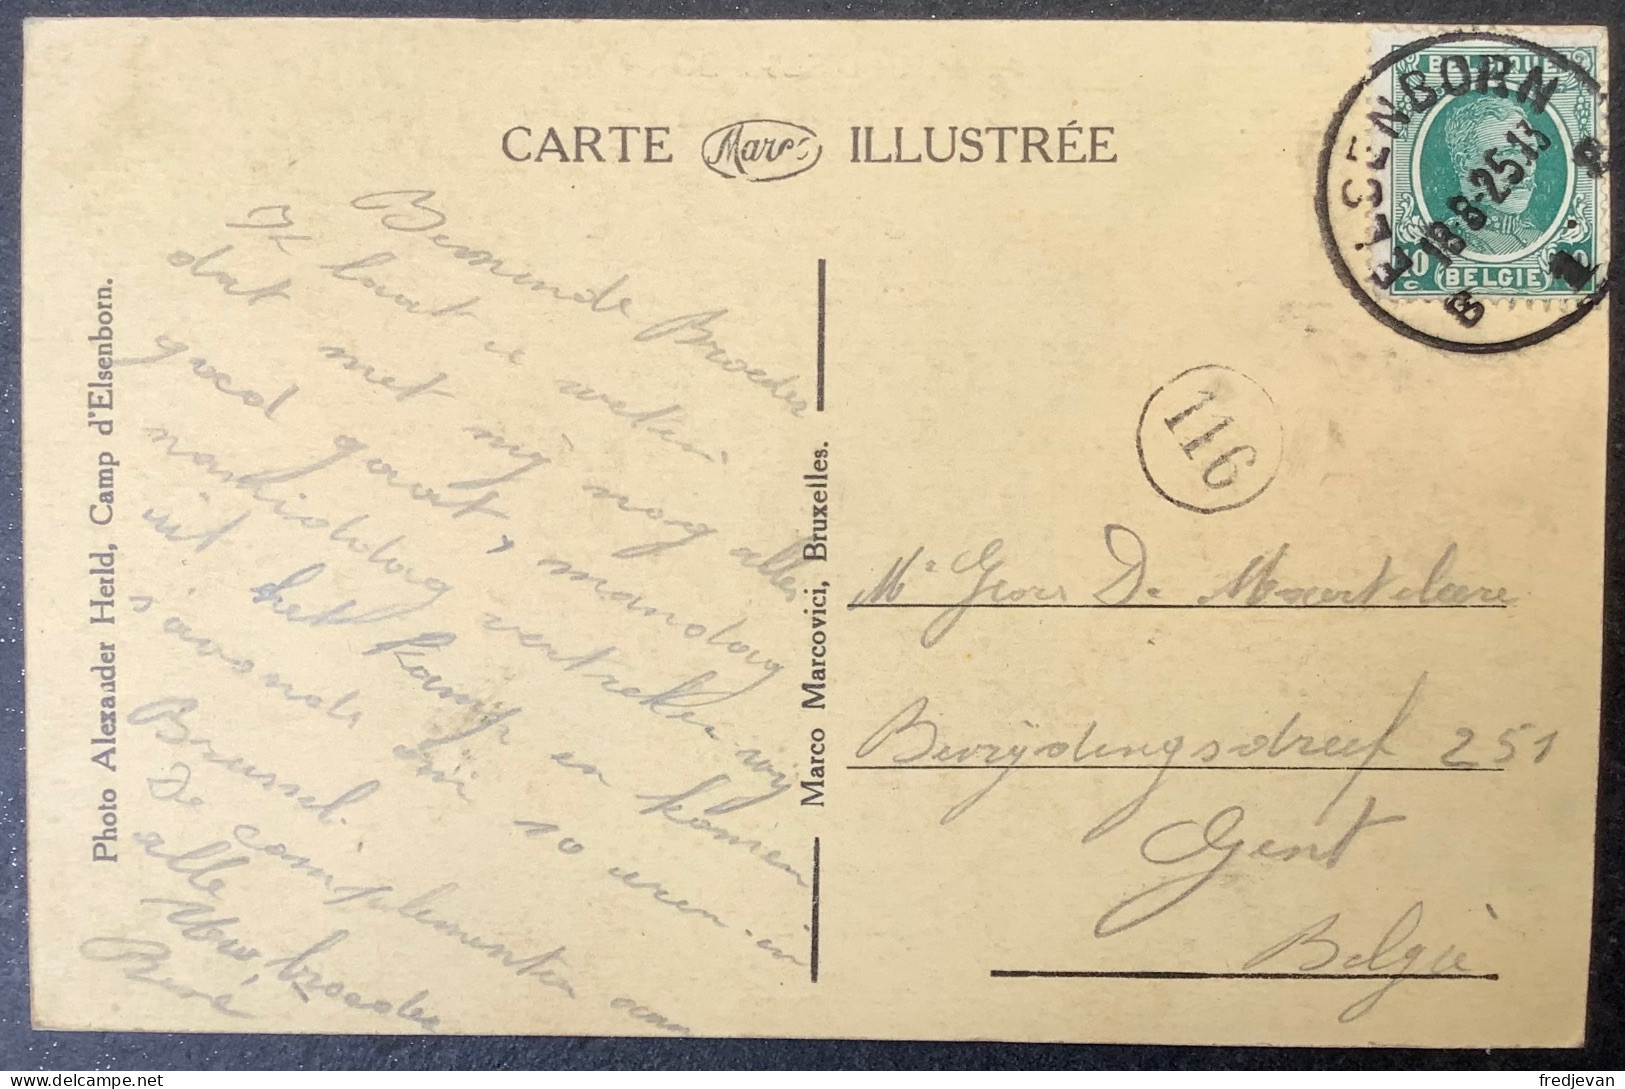 CARTE Marco ILLUSTRÉE
BELGIQUE
ELSENBORN
18-8-25.13
B 1 B
BELGIE
116
Beminde Broeder
Ik laat u weten
dat met mij nog alles
goed gaat, maandag
namiddag vertrekken wij
uit het kamp en komen
s'avonds om 10 uren in
Brussel.
De complimenten aan
alle,
Uw broeder
René
Photo Alexander Herld, Camp d'Elsenborn.
Marco Marcovici, Bruxelles.
Mr Geors De Maertelaere
Bevrijdingsdreef 251
Gent
België
fredjevan